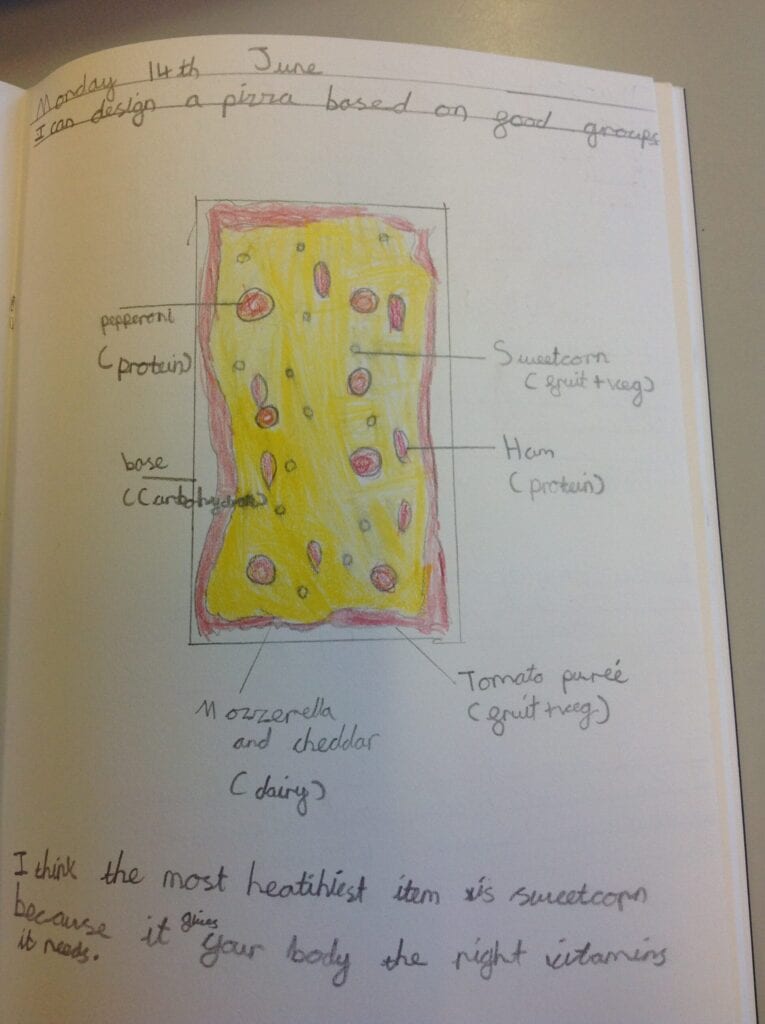 Monday 14th June
I can design a pizza based on good groups
pepperoni
(protein)
Sweetcorn
(fruit+veg)
Ham
(protein)
base
(Carbohydrate)
Tomato pureé
(fruit+veg)
Mozzerella
and cheddar
(dairy)
I think the most heatihiest item is sweetcorn
because it gives your body the right vitamins
it needs.